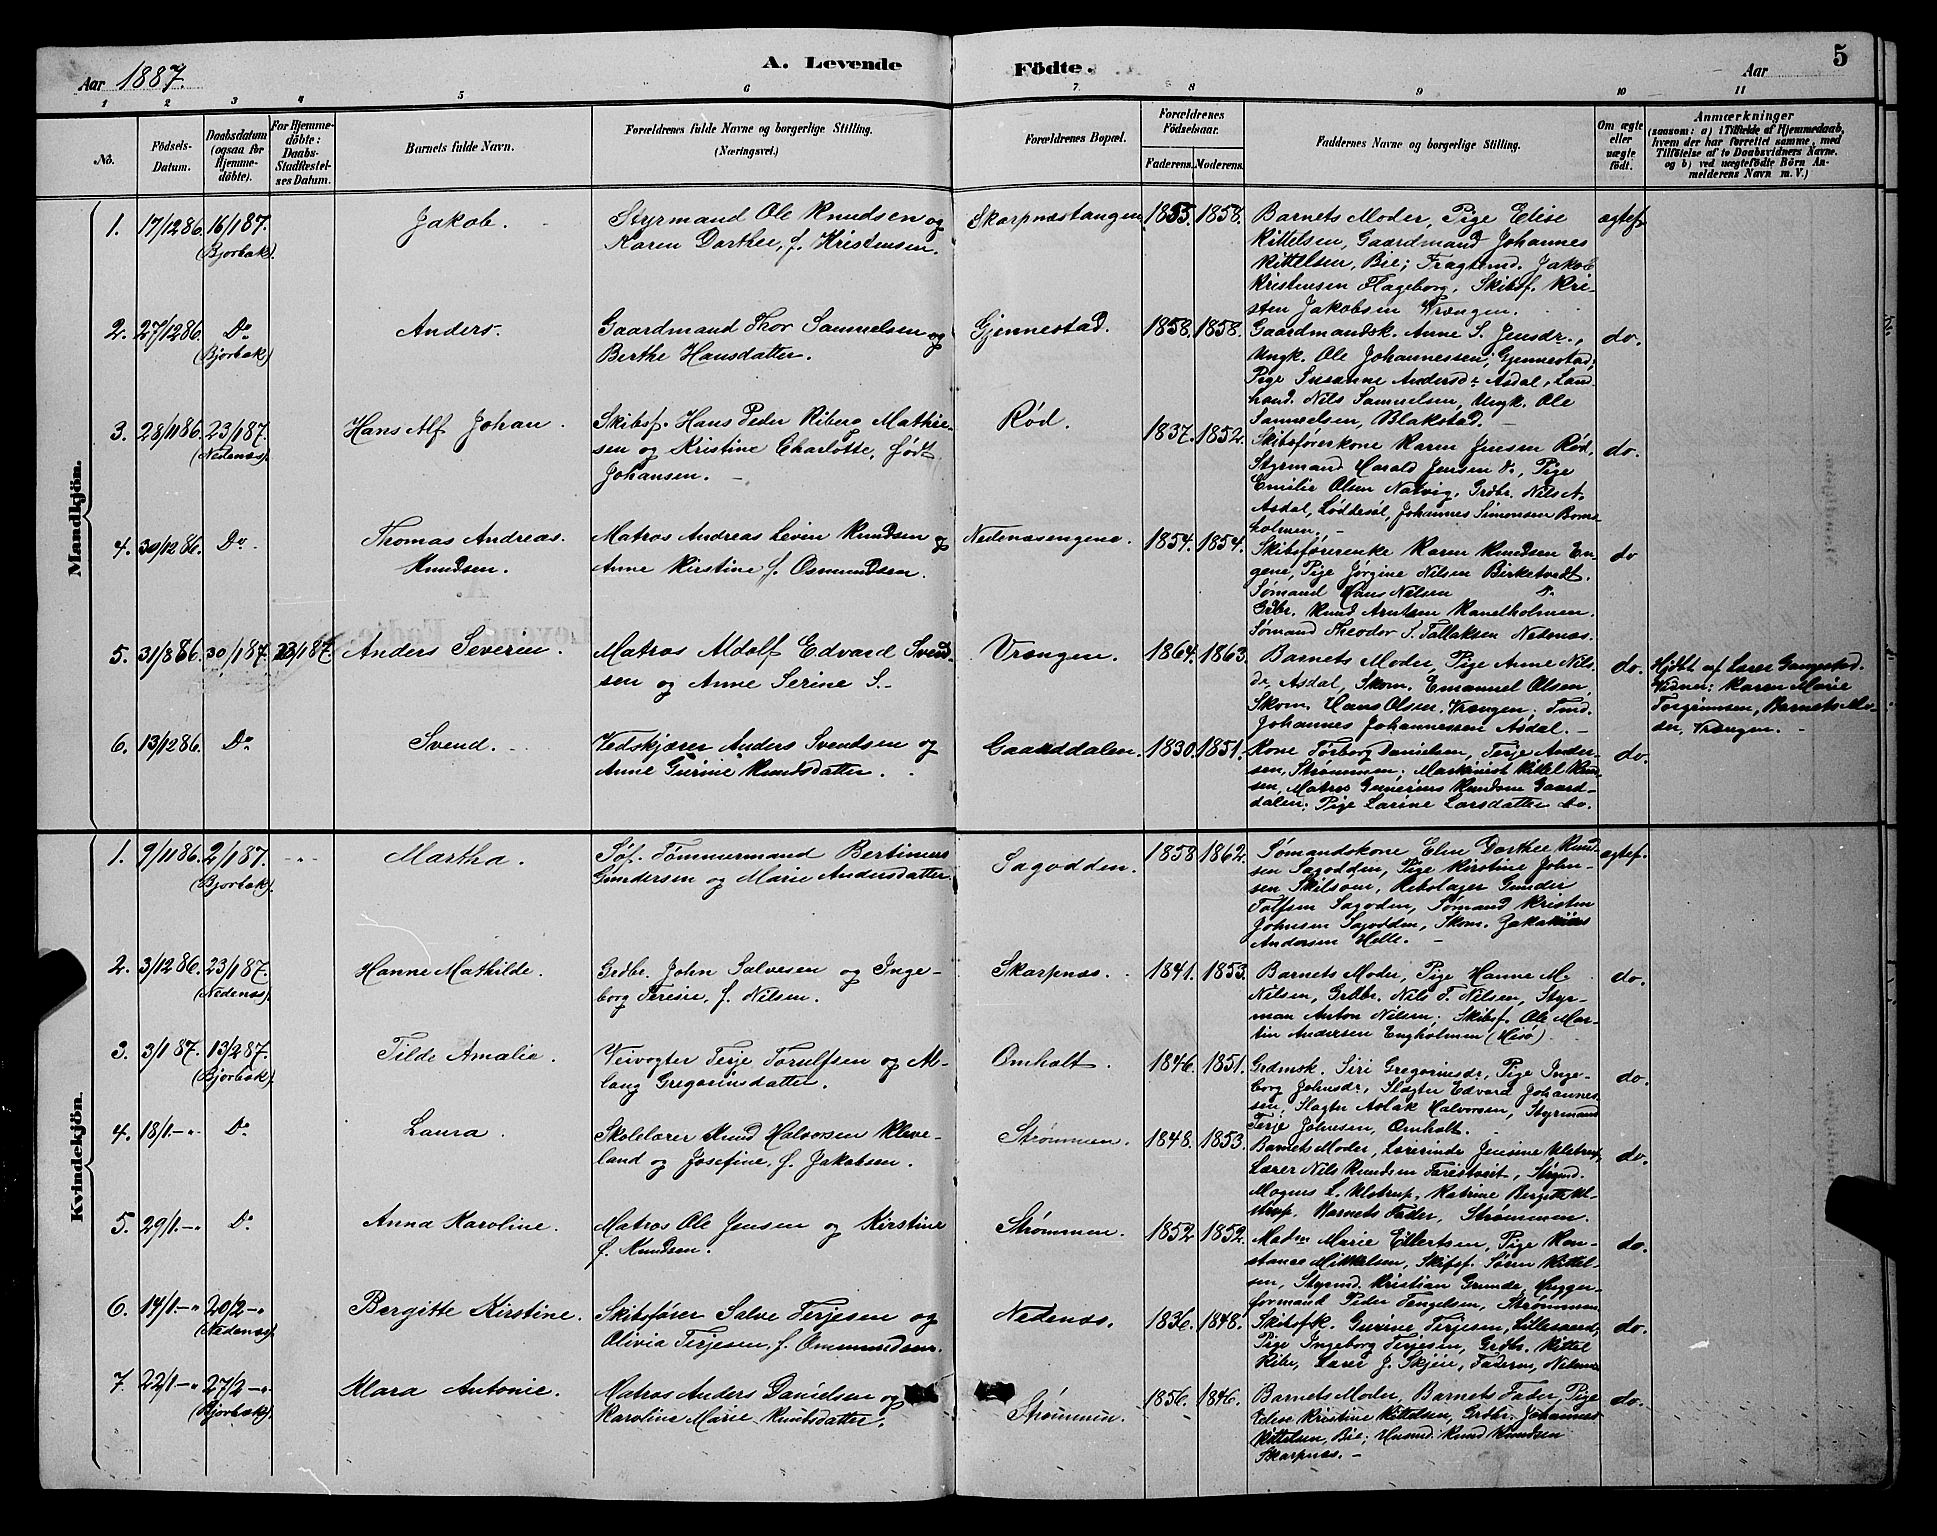 A. Levende Födte.
5
Aar 1887.
Aar
1 2 3 4 5 6 7. 8 9 10 11
No.
Födsels-
Datum.
Daabsdatum
(ogsaa for
Hjemme-
döbte).
For Hjemme-
döbte:
Daabs-
Stadfæstel-
ses Datum.
Barnets fulde Navn.
Forældrenes fulde Navne og borgerlige Stilling.
(Næringsvei.)
Forældrenes Bopæl.
Forældrenes
Födselsaar.
Faderens. Moderens.
Faddernes Navne og borgerlige Stilling.
Om ægte
eller
uægte
födt.
Anmærkninger
(saasom: a) i Tilfælde af Hjemmedaab,
hvem der har forrettet samme, med
Tilföielse af to Daabsvidners Navne.
og b) ved uægtefödte Börn An-
melderens Navn m. V.)
Mandkjön.
1. 17/12 86. 16/1 87.
(Bjorbæk).
Jakob.
Styrmand Ole Knudsen og
Karen Dorthee, f. Kristensen.
Skarpnæstangen
1855. 1858.
Barnets Moder, Pige Elise
Kittelsen, Gaardmand Johannes
Kittelsen, Bie; Fragtemd. Jakob
Kristensen Flageborg, Skibsf. Kri-
sten Jakobsen Vrængen.
ægtef.
2. 27/12 86. Do
(Bjorbæk)
Anders.
Gaardmand Thor Samuelsen og
Berthe Hansdatter.
Gjennestad.
1858. 1858.
Gaardmandsk. Anne S. Jensdr.,
Ungk. Ole Johannessen, Gjennestad;
Pige Susanne Andersdr Asdal, Land-
hand. Nils Samuelsen, Ungk. Ole
Samuelsen, Blakstad.
do.
3. 28/11 86. 23/1 87.
(Nedenæs).
Hans Alf Johan.
Skibsf. Hans Peder Riberg Mathie-
sen og Kristine Charlotte, født
Johansen.
Rød.
1837. 1852.
Skibsførerkone Karen Jensen Rød,
Styrmand Harald Jensen, Pige
Emilie Olsen Natvig, Grdbr. Nils A.
Asdal, Løddesøl, Johannes Simonsen Boms-
holmen,
do.
4. 30/12 86. Do.
Thomas Andreas
Knudsen.
Matros Andreas Levin Knudsen og
Anne Kirstine f. Osmundsen.
Nedenæsengene.
1854. 1854.
Skibsførerenke Karen Knudsen En-
gene, Pige Jørgine Nilsen Birketvedt.
Sømand Hans Nilsen
Grdbr. Knud Arntsen Kanelholmen.
Sømand Theodor T. Tallaksen Nedenæs.
do
5. 31/8 86. 30/1 87. 23/1 87.
Anders Severin.
Matros Adolf Edvard Svend-
sen og Anne Serine S.
Vrængen.
1864. 1863.
Barnets Moder, Pige Anne Nils-
dr Asdal, Skom. Emanuel Olsen,
Skom. Hans Olsen, Vrængen; Tmd.
Johannes Johannessen Asdal.
do.
Hjdbt af Lærer Gangestad.
Vidner: Karen Marie
Torgrimsen, Barnets Mo-
der, Vrængen.
6. 13/12 86. Do
Svend.
Vedskjærer Anders Svendsen og
Anne Gurine Knudsdatter.
Gaarddalen.
1830. 1851.
Kone Torborg Danielsen, Terje Ander-
sen, Strømmen; Maskinist Kittel Knud-
sen, Matros Gunerius Knudsen Gaard-
dalen; Pige Larine Larsdatter do.
do.
Kvindekjön.
1. 9/11 86. 2/1 87.
(Bjorbæk).
Martha.
Søf. Tømmermand Bertinius
Gundersen og Marie Andersdatter.
Sagodden.
1858 1862.
Sømandskone Elen Dorthee Knud-
sen Sagodden, Pige Kirstine John-
sen Skilsom, Rebslager Gunder
Tolfsen Sagoden, Sømand Kristen
Johnsen Sagodden, Skom. Zakarias
Andersen Helle.
ægtef.
2. 3/12 86. 23/1 87.
(Nedenæs)
Hanne Mathilde.
Grdbr. John Salvesen og Inge-
borg Teresie, f. Nilsen.
Skarpnæs.
1841. 1853.
Barnets Moder, Pige Hanne M.
Nilsen, Grdbr. Nils T. Nilsen, Styr-
man Anton Nilsen. Skibsf. Ole Mar-
tin Andersen Engholmen (Hisø).
do.
3. 3/1 87. 13/2 87.
(Bjorbæk).
Tilde Amalie.
Veivogter Terje Torulfsen og As-
laug Gregoriusdatter.
Omholt.
1846. 1851.
Grdmsk. Siri Gregoriusdr, Pige Inge-
borg Johnsdr, Slagter Edvard Johannes-
sen, Slagter Aslak Halvorsen, Styrmand
Terje Johnsen, Omholt.
do.
4. 18/1.– „ Do
Laura.
Skolelærer Knud Halvorsen Kleve-
land og Josefine, f. Jakobsen.
Strømmen.
1848. 1853.
Barnets Moder, Lærerinde Jensine Ulstrup,
Lærer Nils Knudsen Farestveit, Stymd.
Magnus L. Ulstrup, Katrine Bergitte Ul-
strup. Barnets Fader, Strømmen.
do.
5. 29/1.– „ Do
Anna Karoline.
Matros Ole Jensen og Kirstine
f. Knudsen.
Strømmen.
1852 1852.
Madm Marie Eilertsen, Pige Kon-
stance Mikkelsen, Skibsf. Søren Kittel-
sen, Styrmd. Kristian Grunde, Hugger-
formand Peder Tengelsen, Strømmen.
do.
6. 14/1.– „ 20/2 – „
(Nedenæs).
Bergitte Kirstine.
Skibsfører Salve Terjesen og
Olivia Terjesen, f. Ommundsen.
Nedenæs.
1836. 1848.
Skibsfk. Gurine Terjesen, Lillesand,
Pige Ingeborg Terjesen, Grdbr. Kittel
Ribe, Lærer J. Skjeie, Faderen, Nedenæs
do.
7. 22/1 – „ 27/2 – „
(Bjorbæk).
Klara Antonie.
Matros Anders Danielsen og
Karoline Marie Knudsdatter.
Strømmen.
1856. 1846.
Barnets Moder, Barnets Fader, Pige
Elise Kristine Kittelsen, Grdbr. Johannes
Kittelsen, Bie; Husmd. Knud Knudsen
Skarpnæs.
do.